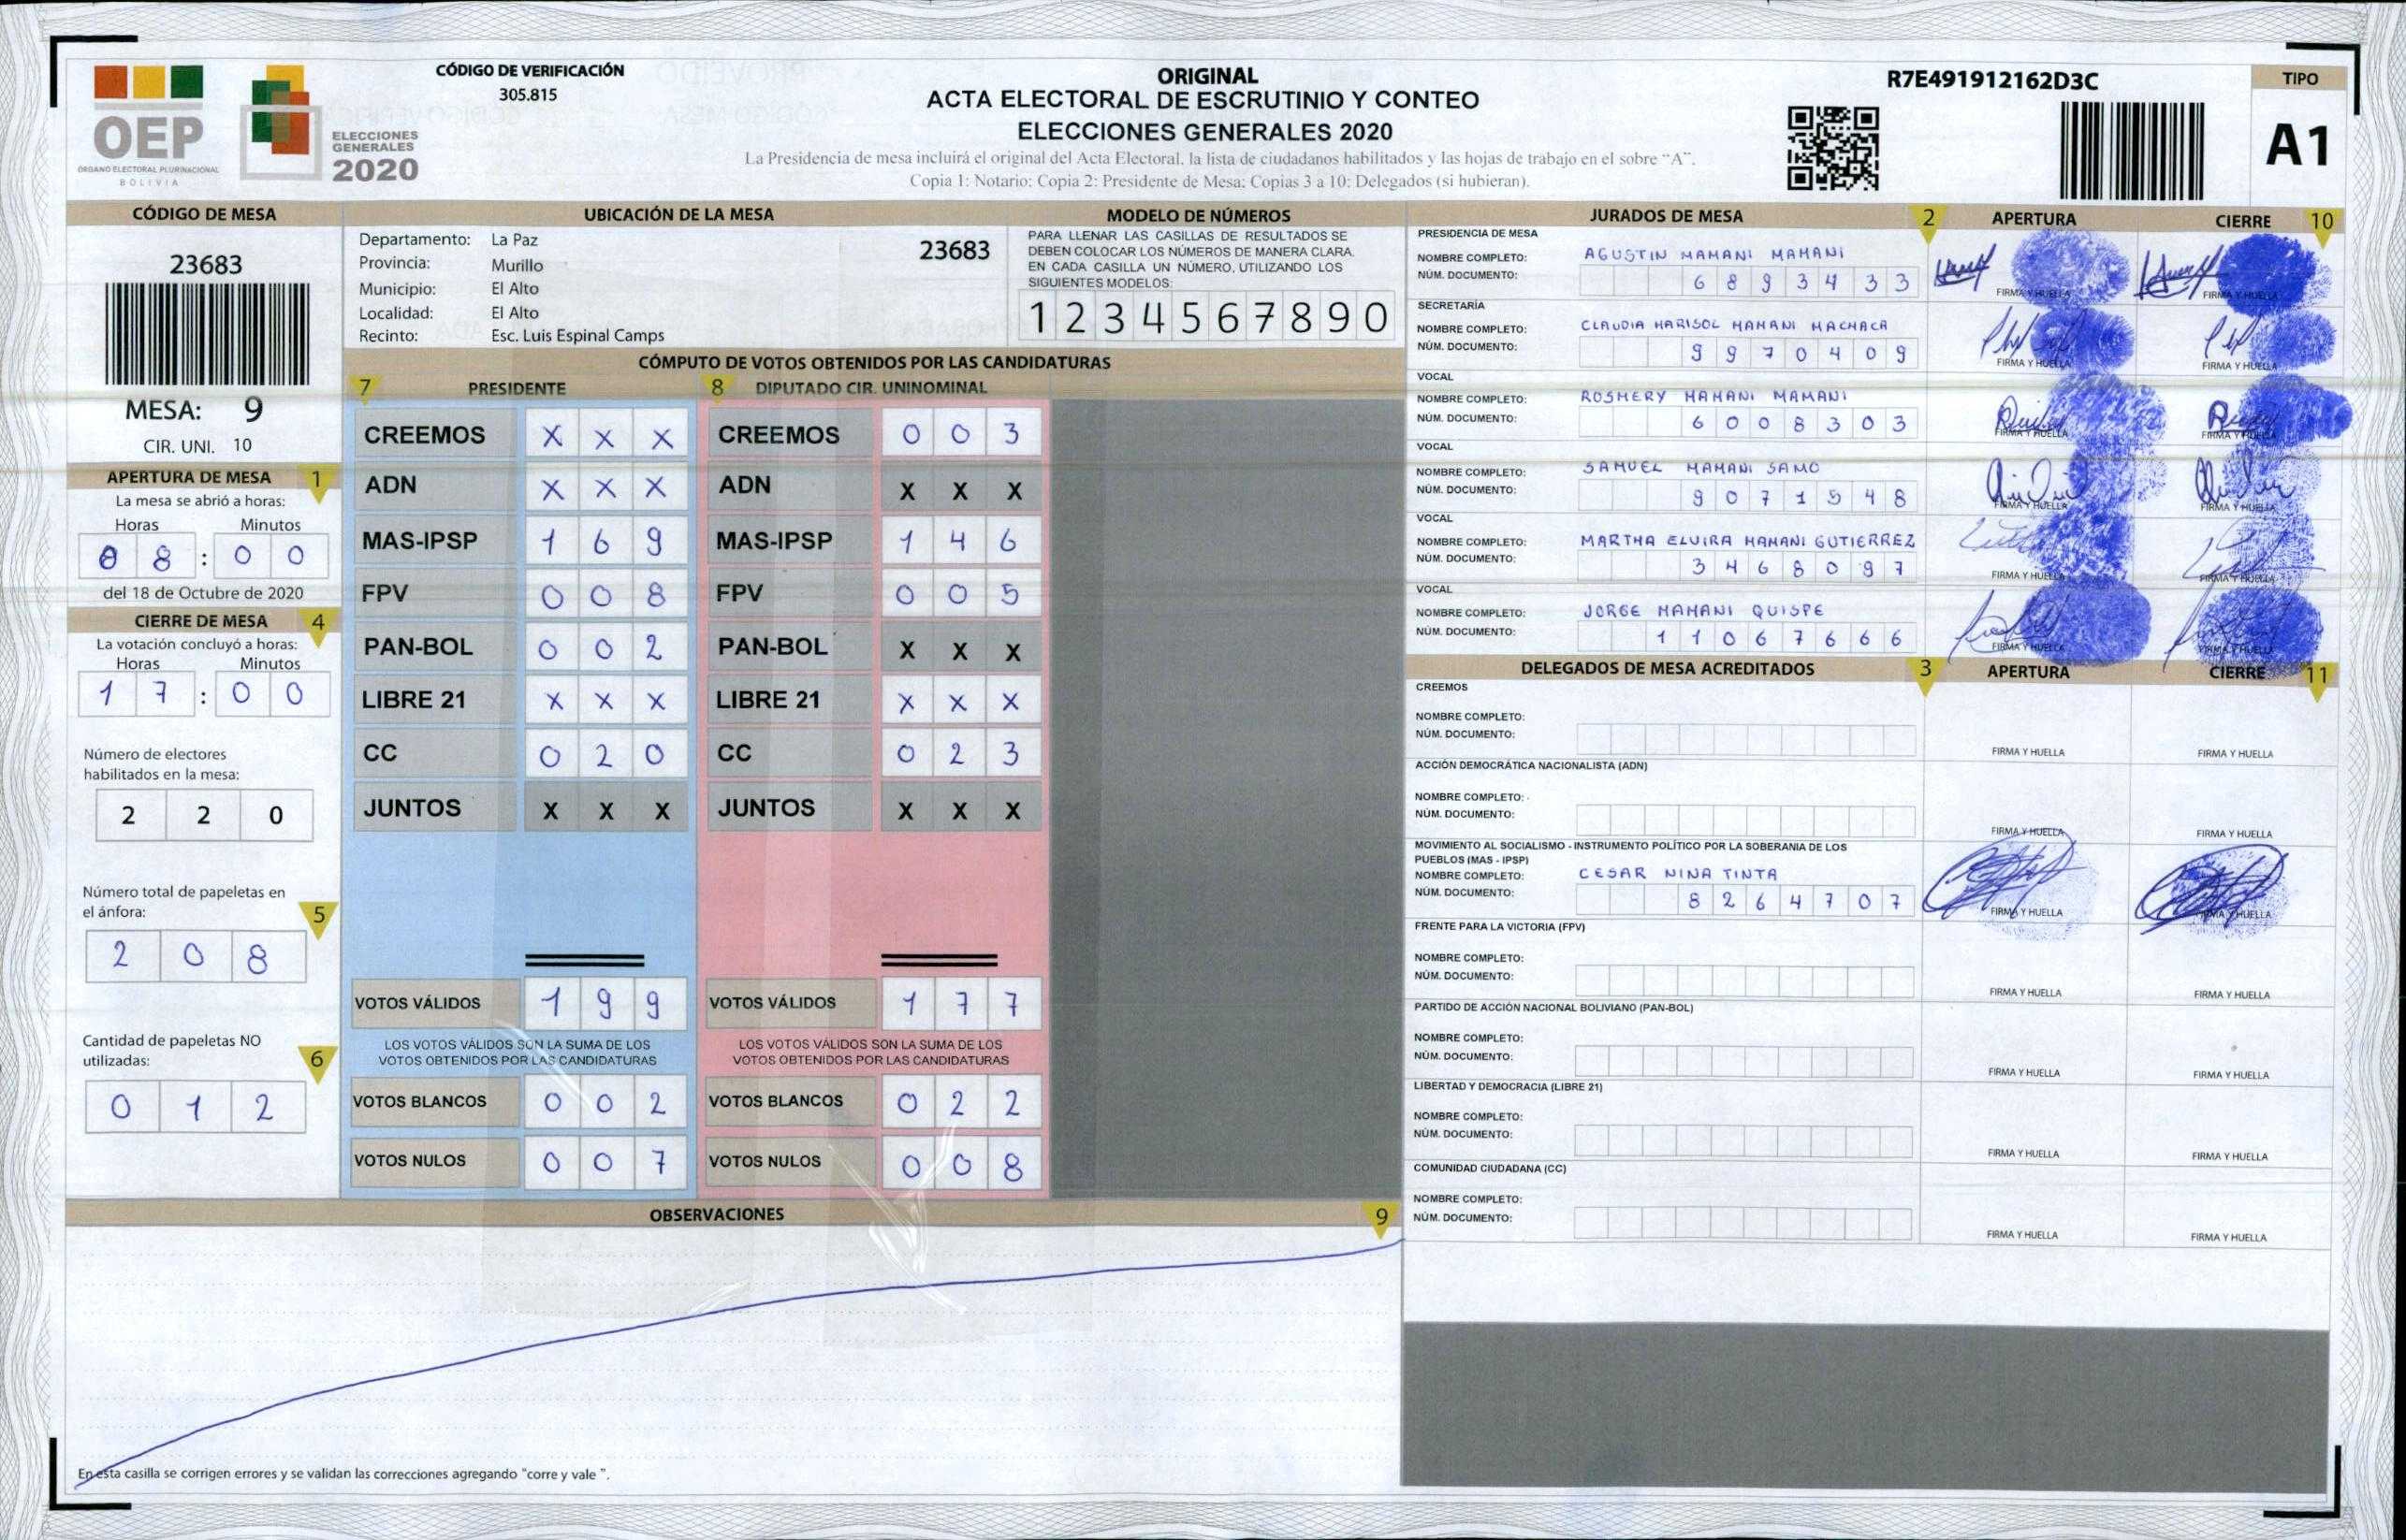 OEP
ÓRGANO ELECTORAL PLURINACIONAL
BOLIVIA
ELECCIONES
GENERALES
2020
CÓDIGO DE VERIFICACIÓN
305.815
ORIGINAL
ACTA ELECTORAL DE ESCRUTINIO Y CONTEO
ELECCIONES GENERALES 2020
La Presidencia de mesa incluirá el original del Acta Electoral, la lista de ciudadanos habilitados y las hojas de trabajo en el sobre "A".
Copia 1: Notario; Copia 2: Presidente de Mesa; Copias 3 a 10: Delegados (si hubieran).
R7E491912162D3C
TIPO
A1
CÓDIGO DE MESA
23683
MESA: 9
CIR. UNI. 10
APERTURA DE MESA 1
La mesa se abrió a horas:
Horas Minutos
0 8 : 0 0
del 18 de Octubre de 2020
CIERRE DE MESA 4
La votación concluyó a horas:
Horas Minutos
1 7 : 0 0
Número de electores
habilitados en la mesa:
2 2 0
Número total de papeletas en
el ánfora: 5
2 0 8
Cantidad de papeletas NO
utilizadas: 6
0 1 2
UBICACIÓN DE LA MESA
Departamento: La Paz 23683
Provincia: Murillo
Municipio: El Alto
Localidad: El Alto
Recinto: Esc. Luis Espinal Camps
MODELO DE NÚMEROS
PARA LLENAR LAS CASILLAS DE RESULTADOS SE
DEBEN COLOCAR LOS NÚMEROS DE MANERA CLARA.
EN CADA CASILLA UN NÚMERO, UTILIZANDO LOS
SIGUIENTES MODELOS:
1 2 3 4 5 6 7 8 9 0
CÓMPUTO DE VOTOS OBTENIDOS POR LAS CANDIDATURAS
7 PRESIDENTE 8 DIPUTADO CIR. UNINOMINAL
CREEMOS X X X CREEMOS 0 0 3
ADN X X X ADN X X X
MAS-IPSP 1 6 9 MAS-IPSP 1 4 6
FPV 0 0 8 FPV 0 0 5
PAN-BOL 0 0 2 PAN-BOL X X X
LIBRE 21 X X X LIBRE 21 X X X
CC 0 2 0 CC 0 2 3
JUNTOS X X X JUNTOS X X X
VOTOS VÁLIDOS 1 9 9 VOTOS VÁLIDOS 1 7 7
LOS VOTOS VÁLIDOS SON LA SUMA DE LOS LOS VOTOS VÁLIDOS SON LA SUMA DE LOS
VOTOS OBTENIDOS POR LAS CANDIDATURAS VOTOS OBTENIDOS POR LAS CANDIDATURAS
VOTOS BLANCOS 0 0 2 VOTOS BLANCOS 0 2 2
VOTOS NULOS 0 0 7 VOTOS NULOS 0 0 8
OBSERVACIONES 9
En esta casilla se corrigen errores y se validan las correcciones agregando "corre y vale ".
JURADOS DE MESA 2 APERTURA CIERRE 10
PRESIDENCIA DE MESA
NOMBRE COMPLETO: AGUSTIN MAMANI MAMANI
NÚM. DOCUMENTO: 6 8 9 3 4 3 3
FIRMA Y HUELLA FIRMA Y HUELLA
SECRETARÍA
NOMBRE COMPLETO: CLAUDIA MARISOL MAMANI MACHACA
NÚM. DOCUMENTO: 9 9 7 0 4 0 9
FIRMA Y HUELLA FIRMA Y HUELLA
VOCAL
NOMBRE COMPLETO: ROSMERY MAMANI MAMANI
NÚM. DOCUMENTO: 6 0 0 8 3 0 3
FIRMA Y HUELLA FIRMA Y HUELLA
VOCAL
NOMBRE COMPLETO: SAMUEL MAMANI SAMO
NÚM. DOCUMENTO: 9 0 7 1 5 4 8
FIRMA Y HUELLA FIRMA Y HUELLA
VOCAL
NOMBRE COMPLETO: MARTHA ELVIRA MAMANI GUTIERREZ
NÚM. DOCUMENTO: 3 4 6 8 0 9 7
FIRMA Y HUELLA FIRMA Y HUELLA
VOCAL
NOMBRE COMPLETO: JORGE MAMANI QUISPE
NÚM. DOCUMENTO: 1 1 0 6 7 6 6 6
FIRMA Y HUELLA FIRMA Y HUELLA
DELEGADOS DE MESA ACREDITADOS 3 APERTURA CIERRE 11
CREEMOS
NOMBRE COMPLETO:
NÚM. DOCUMENTO:
FIRMA Y HUELLA FIRMA Y HUELLA
ACCIÓN DEMOCRÁTICA NACIONALISTA (ADN)
NOMBRE COMPLETO:
NÚM. DOCUMENTO:
FIRMA Y HUELLA FIRMA Y HUELLA
MOVIMIENTO AL SOCIALISMO - INSTRUMENTO POLÍTICO POR LA SOBERANIA DE LOS
PUEBLOS (MAS - IPSP)
NOMBRE COMPLETO: CESAR NINA TINTA
NÚM. DOCUMENTO: 8 2 6 4 7 0 7
FIRMA Y HUELLA FIRMA Y HUELLA
FRENTE PARA LA VICTORIA (FPV)
NOMBRE COMPLETO:
NÚM. DOCUMENTO:
FIRMA Y HUELLA FIRMA Y HUELLA
PARTIDO DE ACCIÓN NACIONAL BOLIVIANO (PAN-BOL)
NOMBRE COMPLETO:
NÚM. DOCUMENTO:
FIRMA Y HUELLA FIRMA Y HUELLA
LIBERTAD Y DEMOCRACIA (LIBRE 21)
NOMBRE COMPLETO:
NÚM. DOCUMENTO:
FIRMA Y HUELLA FIRMA Y HUELLA
COMUNIDAD CIUDADANA (CC)
NOMBRE COMPLETO:
NÚM. DOCUMENTO:
FIRMA Y HUELLA FIRMA Y HUELLA